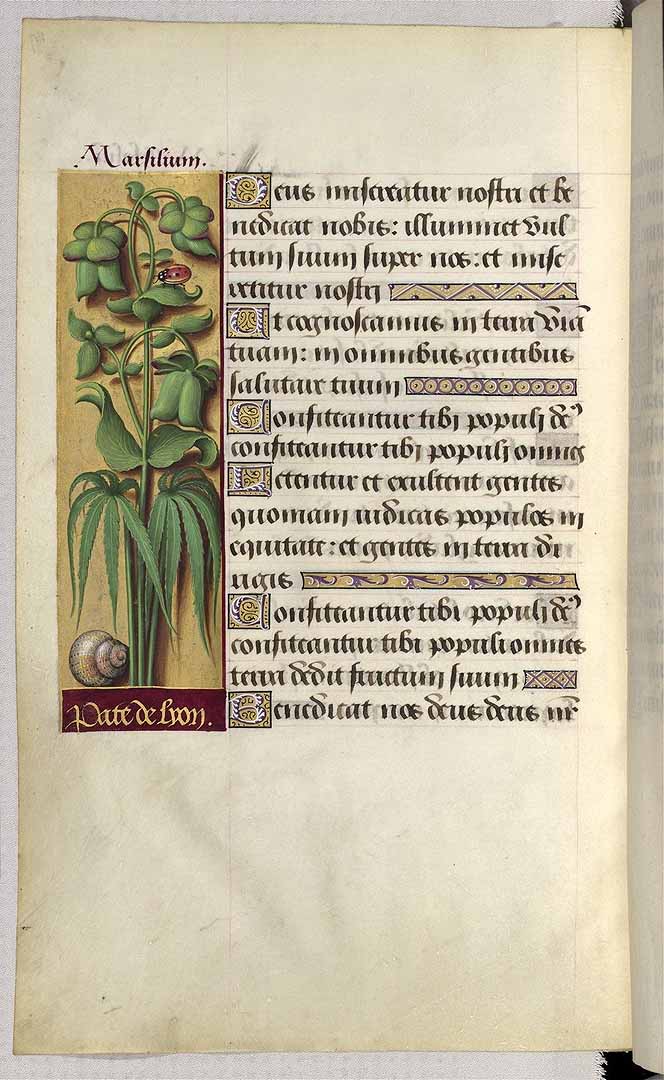 Marsilium.
Deus misereatur nostri et be
nedicat nobis: illuminet vul
tum suum super nos: et mise
reatur nostri
Et cognoscamus in terra viā
tuam: in omnibus gentibus
salutare tuum
Confiteantur tibi populi deꝰ
confiteantur tibi populi omnes
Letentur et exultent gentes
quoniam iudicas populos in
equitate: et gentes in terra di
rigis
Confiteantur tibi populi deꝰ
confiteantur tibi populi omnes
terra dedit fructum suum
Benedicat nos deus deus nr̄
Pate de lyon.